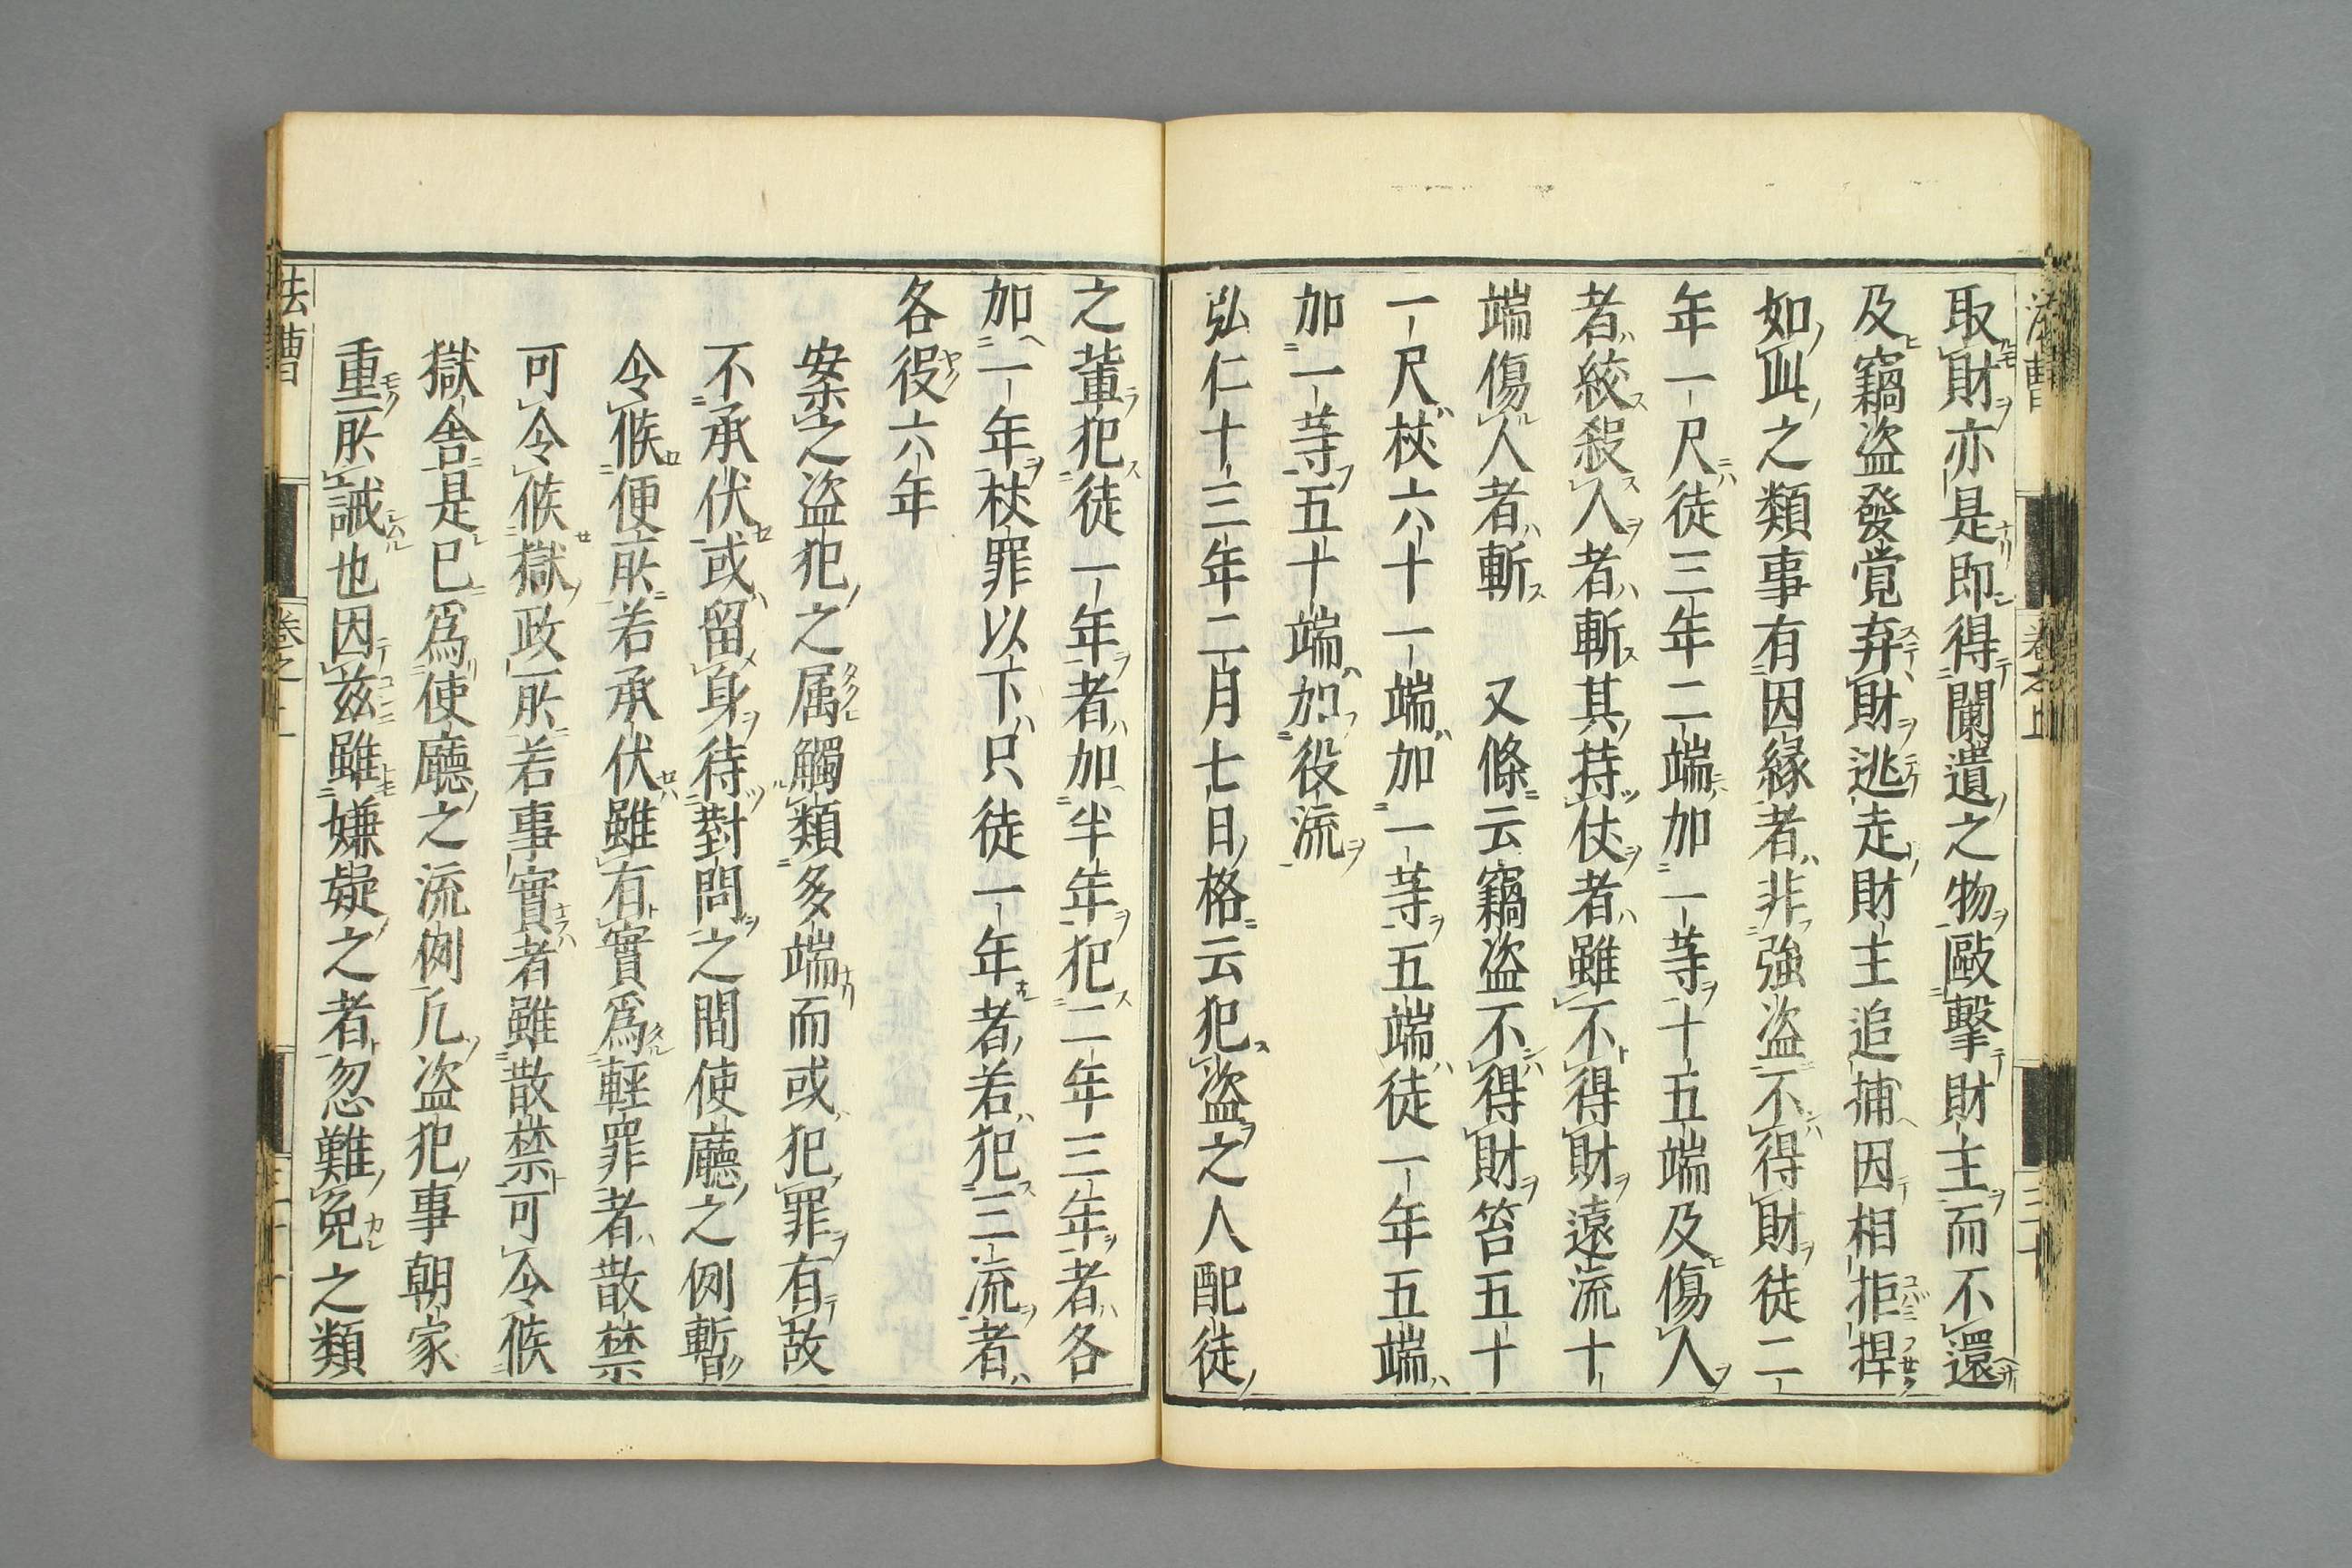 取財亦是即得闌遺之物毆擊財主而不還
及竊盗發覚弃財逃走財主追捕因相拒捍
如此之類事有因縁者非強盗不得財徒二
年一尺徒三年二端加一等十五端及傷人
者絞殺人者斬其持仗者雖不得財遠流十
端傷人者斬　又條云竊盗不得財笞五十
一尺杖六十一端加一等五端徒一年五端
加一等五十端加役流
弘仁十三年二月七日格云犯盗之人配徒
之輩犯徒一年者加半年犯二年三年者各
加一年杖罪以下只徒一年者若犯三流者
各役六年
安案之盗犯之属觸類多端而或犯罪有故
不承伏或留身待對問之間使廳之例暫
令候便所若承伏雖有實為輕罪者散禁
可令候獄政所若事實者雖散禁可令候
獄舍是已為使廳之流例凡盗犯事朝家
重所誡也因茲雖嫌疑之者忽難免之類
法曹　卷之上